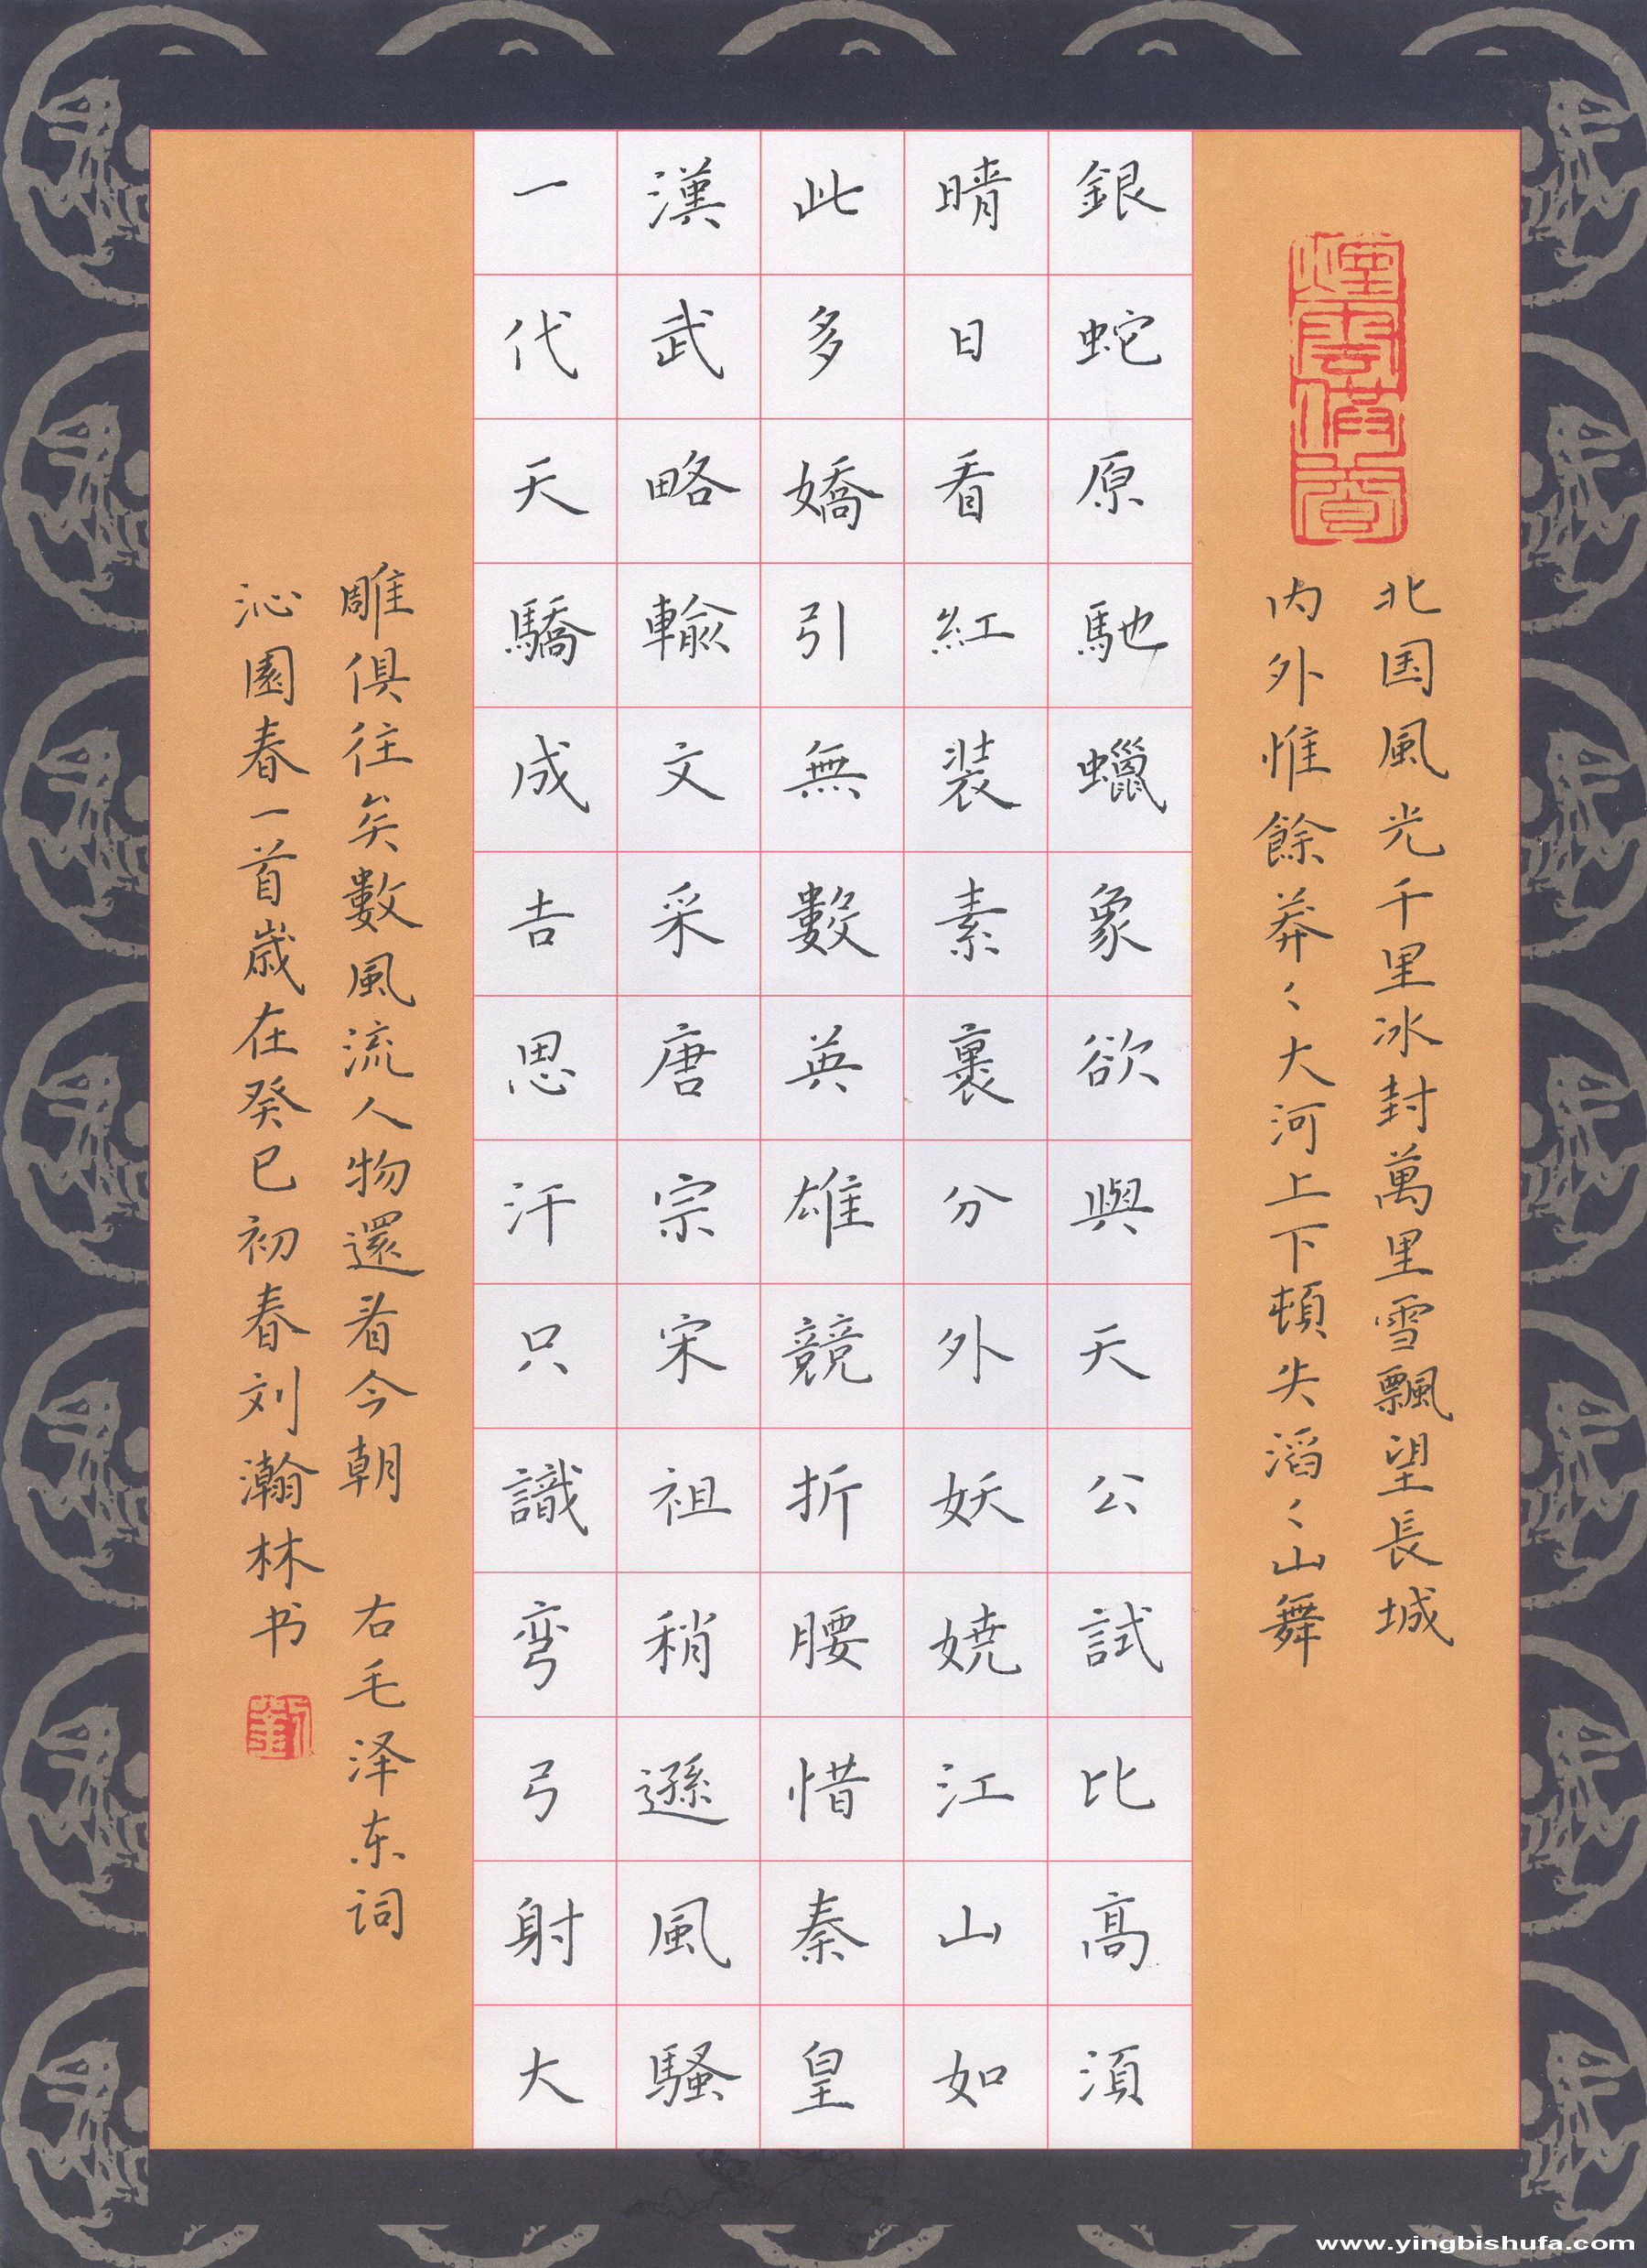 北国風光千里冰封萬里雪飄望長城
内外惟餘莽〻大河上下頓失滔〻山舞
銀蛇原馳蠟象欲與天公試比高須
晴日看紅装素裹分外妖娆江山如
此多嬌引無數英雄競折腰惜秦皇
漢武略輸文采唐宗宋祖稍遜風騷
一代天驕成吉思汗只識弯弓射大
雕俱往矣數風流人物還看今朝 右毛泽东词
沁園春一首歲在癸巳初春刘瀚林书
劉
www.yingbishufa.com